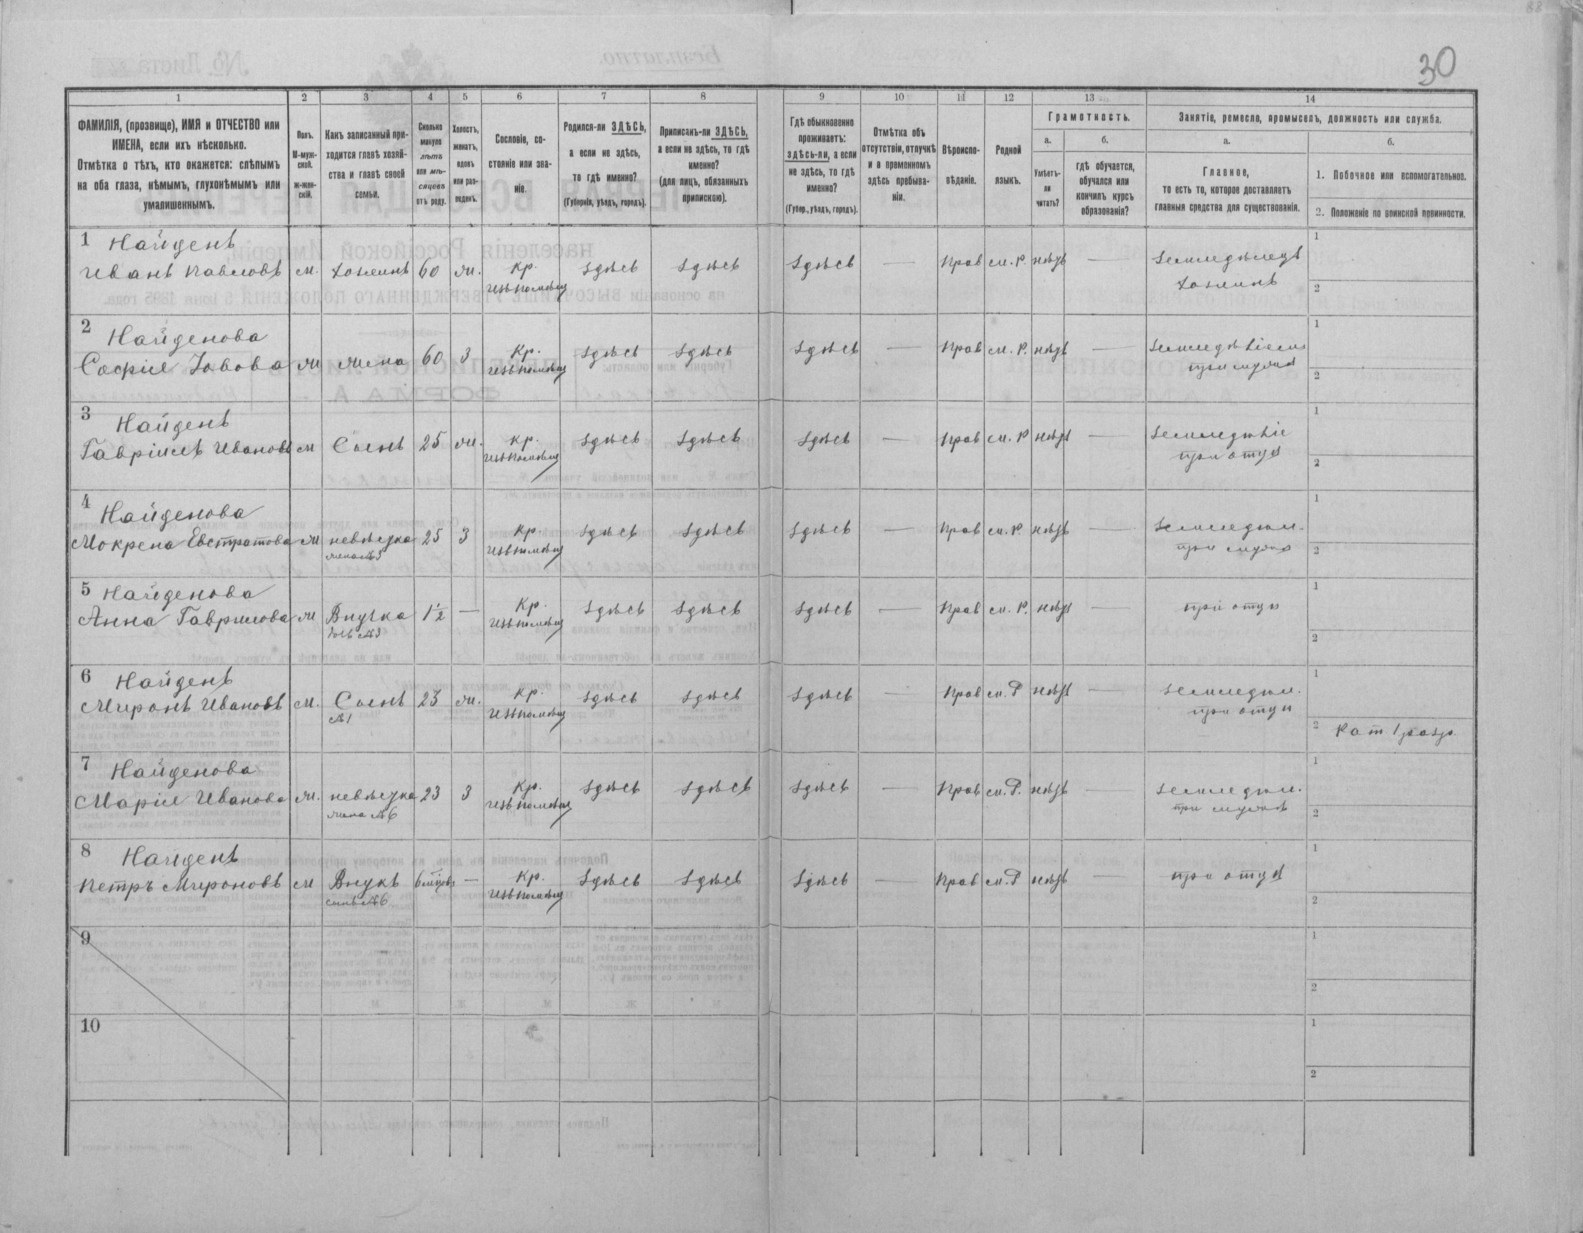 30
1 2 3 4 5 6 7 8 9 10 11 12 13 14
ФАМИЛІЯ, (прозвище), ИМЯ и ОТЧЕСТВО или
ИМЕНА, если ихъ нѣсколько.
Отмѣтка о тѣхъ, кто окажется: слѣпымъ
на оба глаза, нѣмымъ, глухонѣмымъ или
умалишеннымъ.
Полъ.
М-муж-
ской.
ж-жен-
скій.
Какъ записанный при-
ходится главѣ хозяй-
ства и главѣ своей
семьи.
Сколько
минуло
лѣтъ
или мѣ-
сяцевъ
отъ роду.
Холостъ,
женатъ,
вдовъ
или раз-
веденъ.
Сословіе, со-
стояніе или зва-
ніе.
Родился-ли ЗДѢСЬ,
а если не здѣсь,
то гдѣ именно?
(Губернія, уѣздъ, городъ).
Приписанъ-ли ЗДѢСЬ,
а если не здѣсь, то гдѣ
именно?
(для лицъ, обязанныхъ
припискою).
Гдѣ обыкновенно
проживаетъ:
здѣсь-ли, а если
не здѣсь, то гдѣ
именно?
(Губер., уѣздъ, городъ).
Отмѣтка объ
отсутствіи, отлучкѣ
и о временномъ
здѣсь пребыва-
ніи.
Вѣроиспо-
вѣданіе.
Родной
языкъ.
Грамотность.
а.
Умѣетъ-
ли
читать?
б.
гдѣ обучается,
обучался или
кончилъ курсъ
образованія?
Занятіе, ремесло, промыселъ, должность или служба.
а.
Главное,
то есть то, которое доставляетъ
главныя средства для существованія.
б.
1. Побочное или вспомогательное.
2. Положеніе по воинской повинности.
1 Найденъ
Иванъ Павловъ м. Хозяинъ 60 ж. Кр. Здѣсь Здѣсь Здѣсь — Прав м. Р. нѣтъ — Земледѣлецъ 1
изъ помѣщ Хозяинъ 2
2 Найденова
Софія Іовова ж жена 60 З Кр. Здѣсь Здѣсь Здѣсь — Прав м. Р. нѣтъ — 1
изъ помѣщ при мужѣ 2
3 Найденъ
Гавріилъ Ивановъ м Сынъ 25 ж. Кр. Здѣсь Здѣсь Здѣсь — Прав м. Р нѣтъ — 1
изъ помѣщ при отцѣ 2
4 Найденова
Мокрена Евстратова ж невѣстка 25 З Кр. Здѣсь Здѣсь Здѣсь — Прав м. Р. нѣтъ — Земледѣл. 1
жена №3 изъ помѣщ при мужѣ 2
5 Найденова
Анна Гаврилова ж Внучка 1½ — Кр. Здѣсь Здѣсь Здѣсь — Прав м. Р. нѣтъ — при отцѣ 1
дочь №3 изъ помѣщ 2
6 Найденъ
Миронъ Ивановъ м. Сынъ 23 ж. Кр. Здѣсь Здѣсь Здѣсь — Прав м. Р нѣтъ — Земледѣл. 1
№1 изъ помѣщ при отцѣ 2 Рат 1 разр.
7 Найденова
Марія Иванова ж. невѣстка 23 З Кр. Здѣсь Здѣсь Здѣсь — Прав м. Р. нѣтъ — Земледѣл. 1
жена №6 изъ помѣщ при мужѣ 2
8 Найденъ
Петръ Мироновъ м Внукъ 6 — Кр. Здѣсь Здѣсь Здѣсь — Прав м. Р нѣтъ — при отцѣ 1
сынъ №6 изъ помѣщ 2
9 1
2
10 1
2